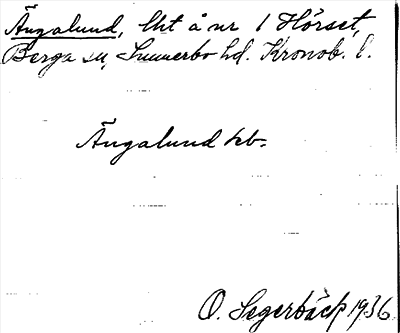 Ängalund, lht å nr 1 Hörset,
Berga sn, Sunnerbo hd. Kronob. l.
Ängalund kb.
O. Segerbäck 1936